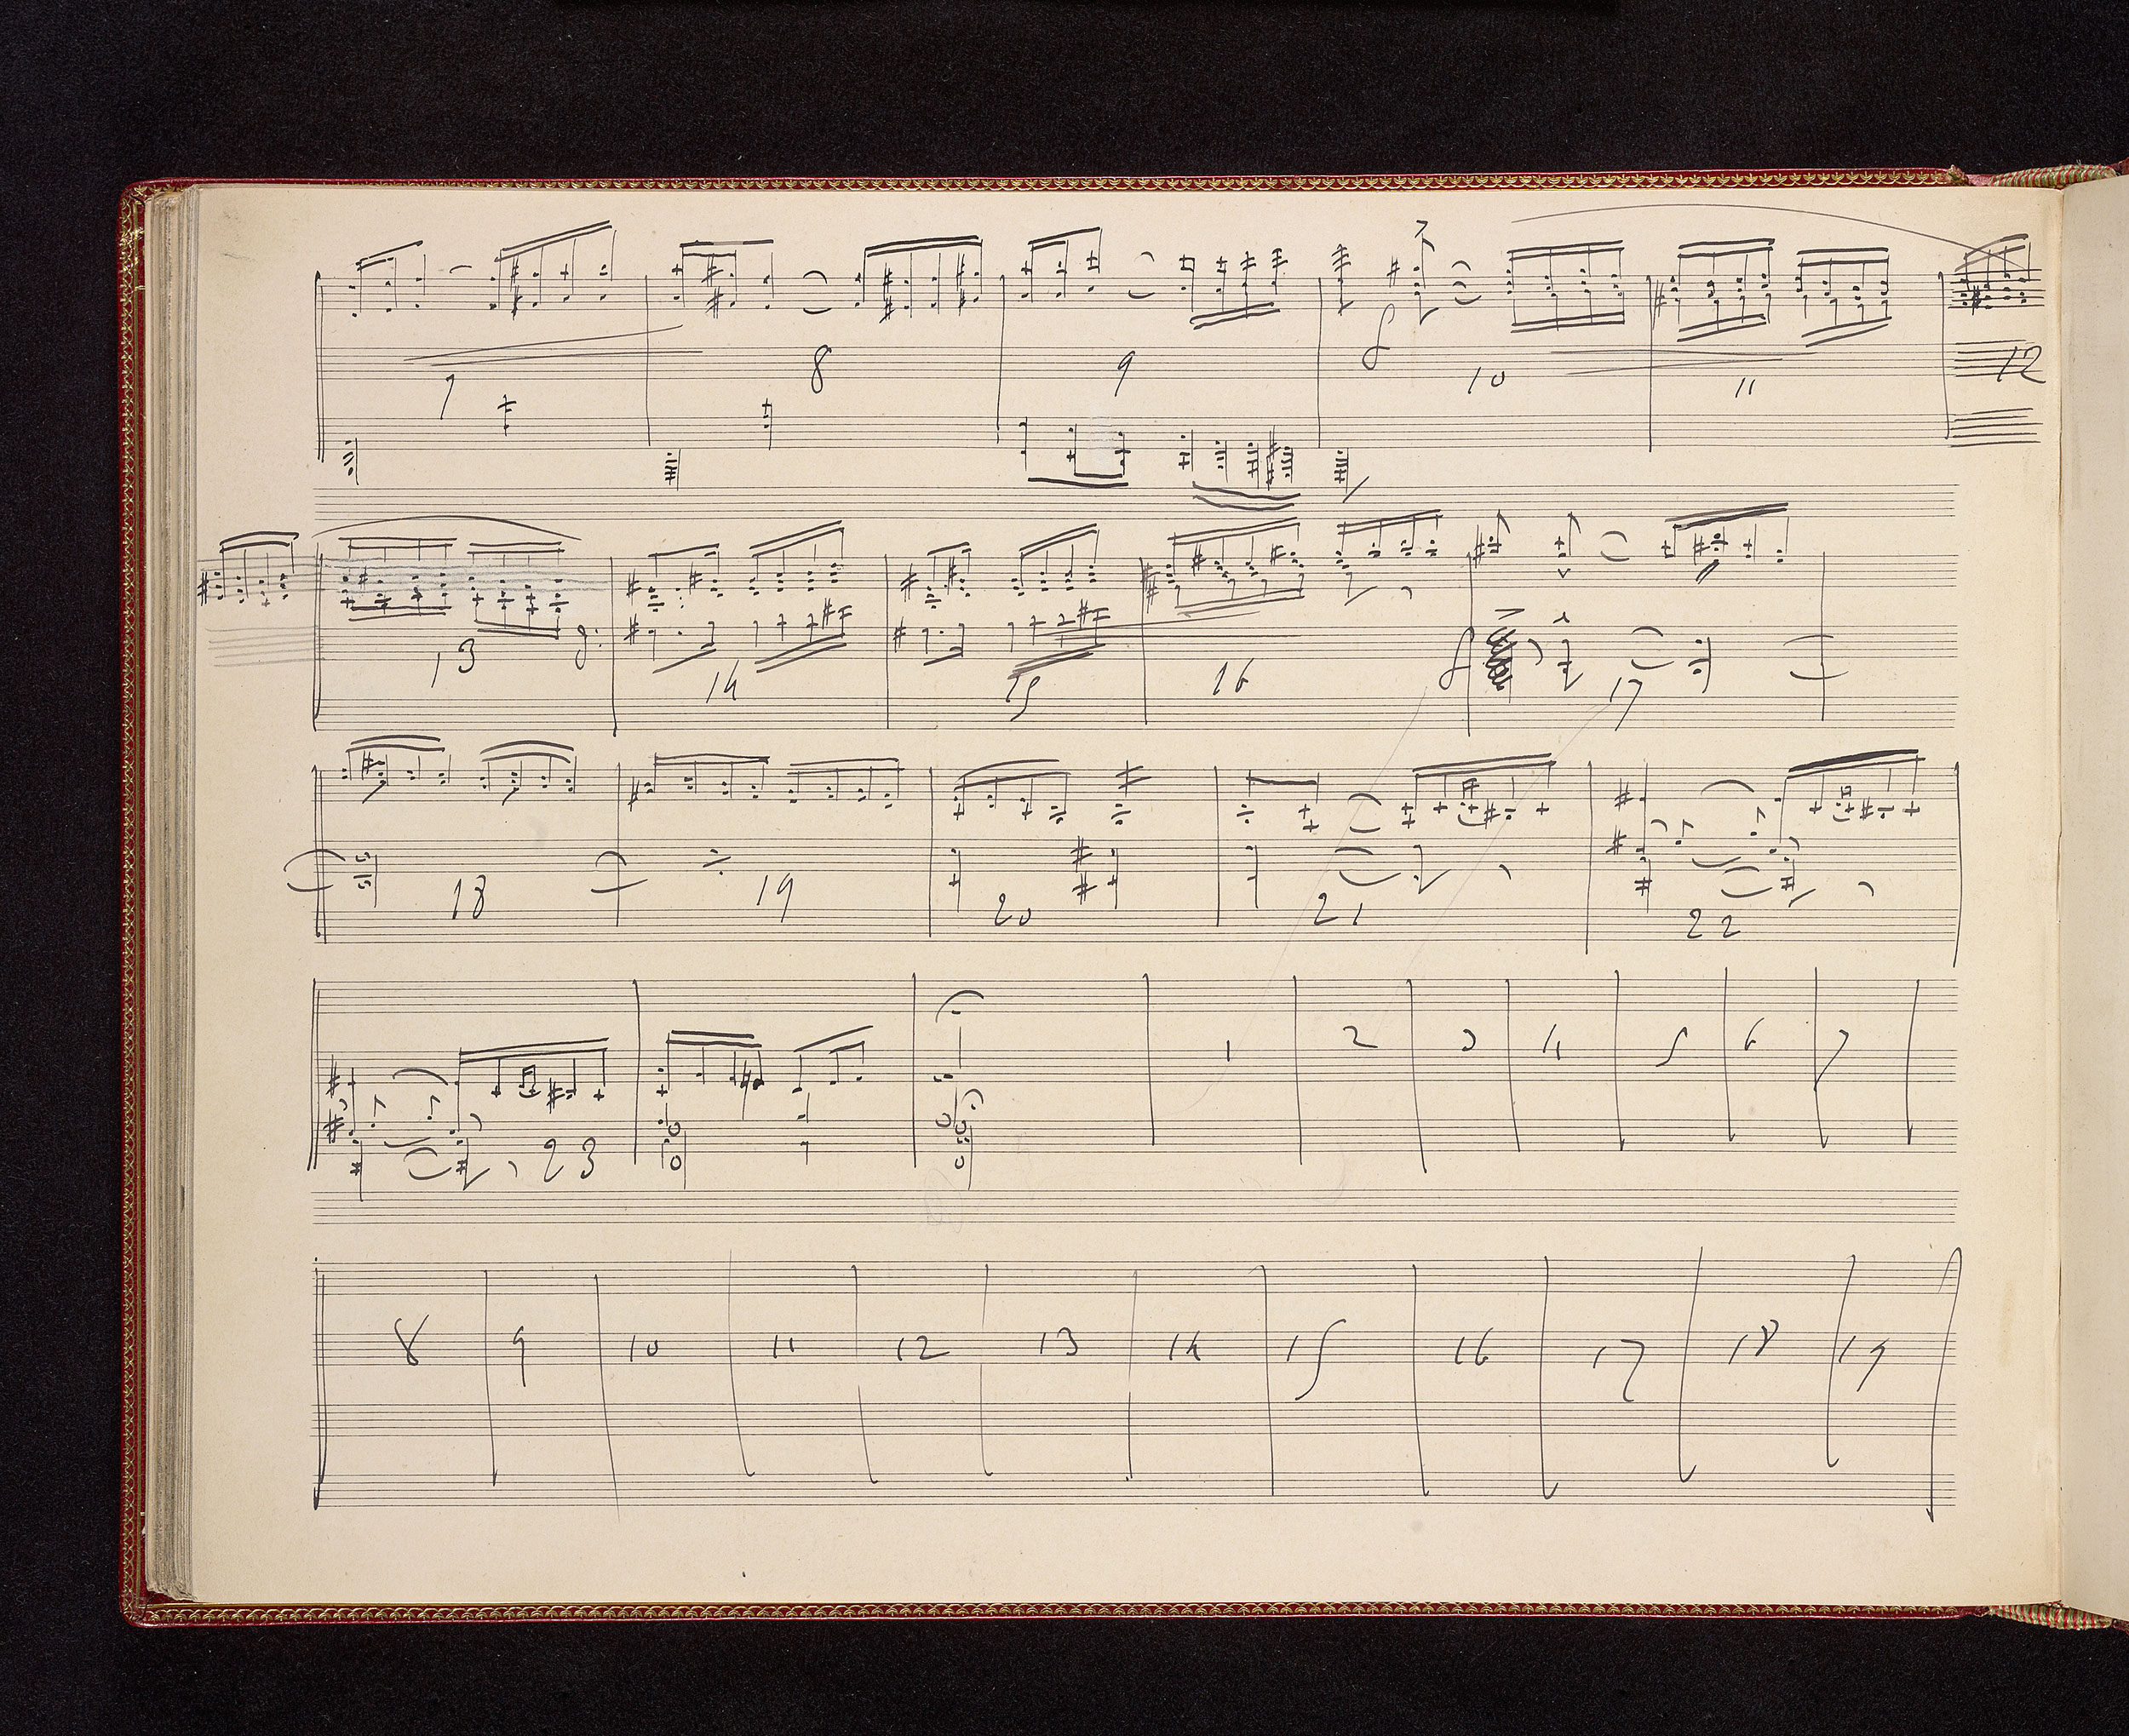 7 8 9 f 10 11 12
13 14 15 16 f 17
18 19 20 21 22
23 1 2 3 4 5 6 7
8 9 10 11 12 13 14 15 16 17 18 19